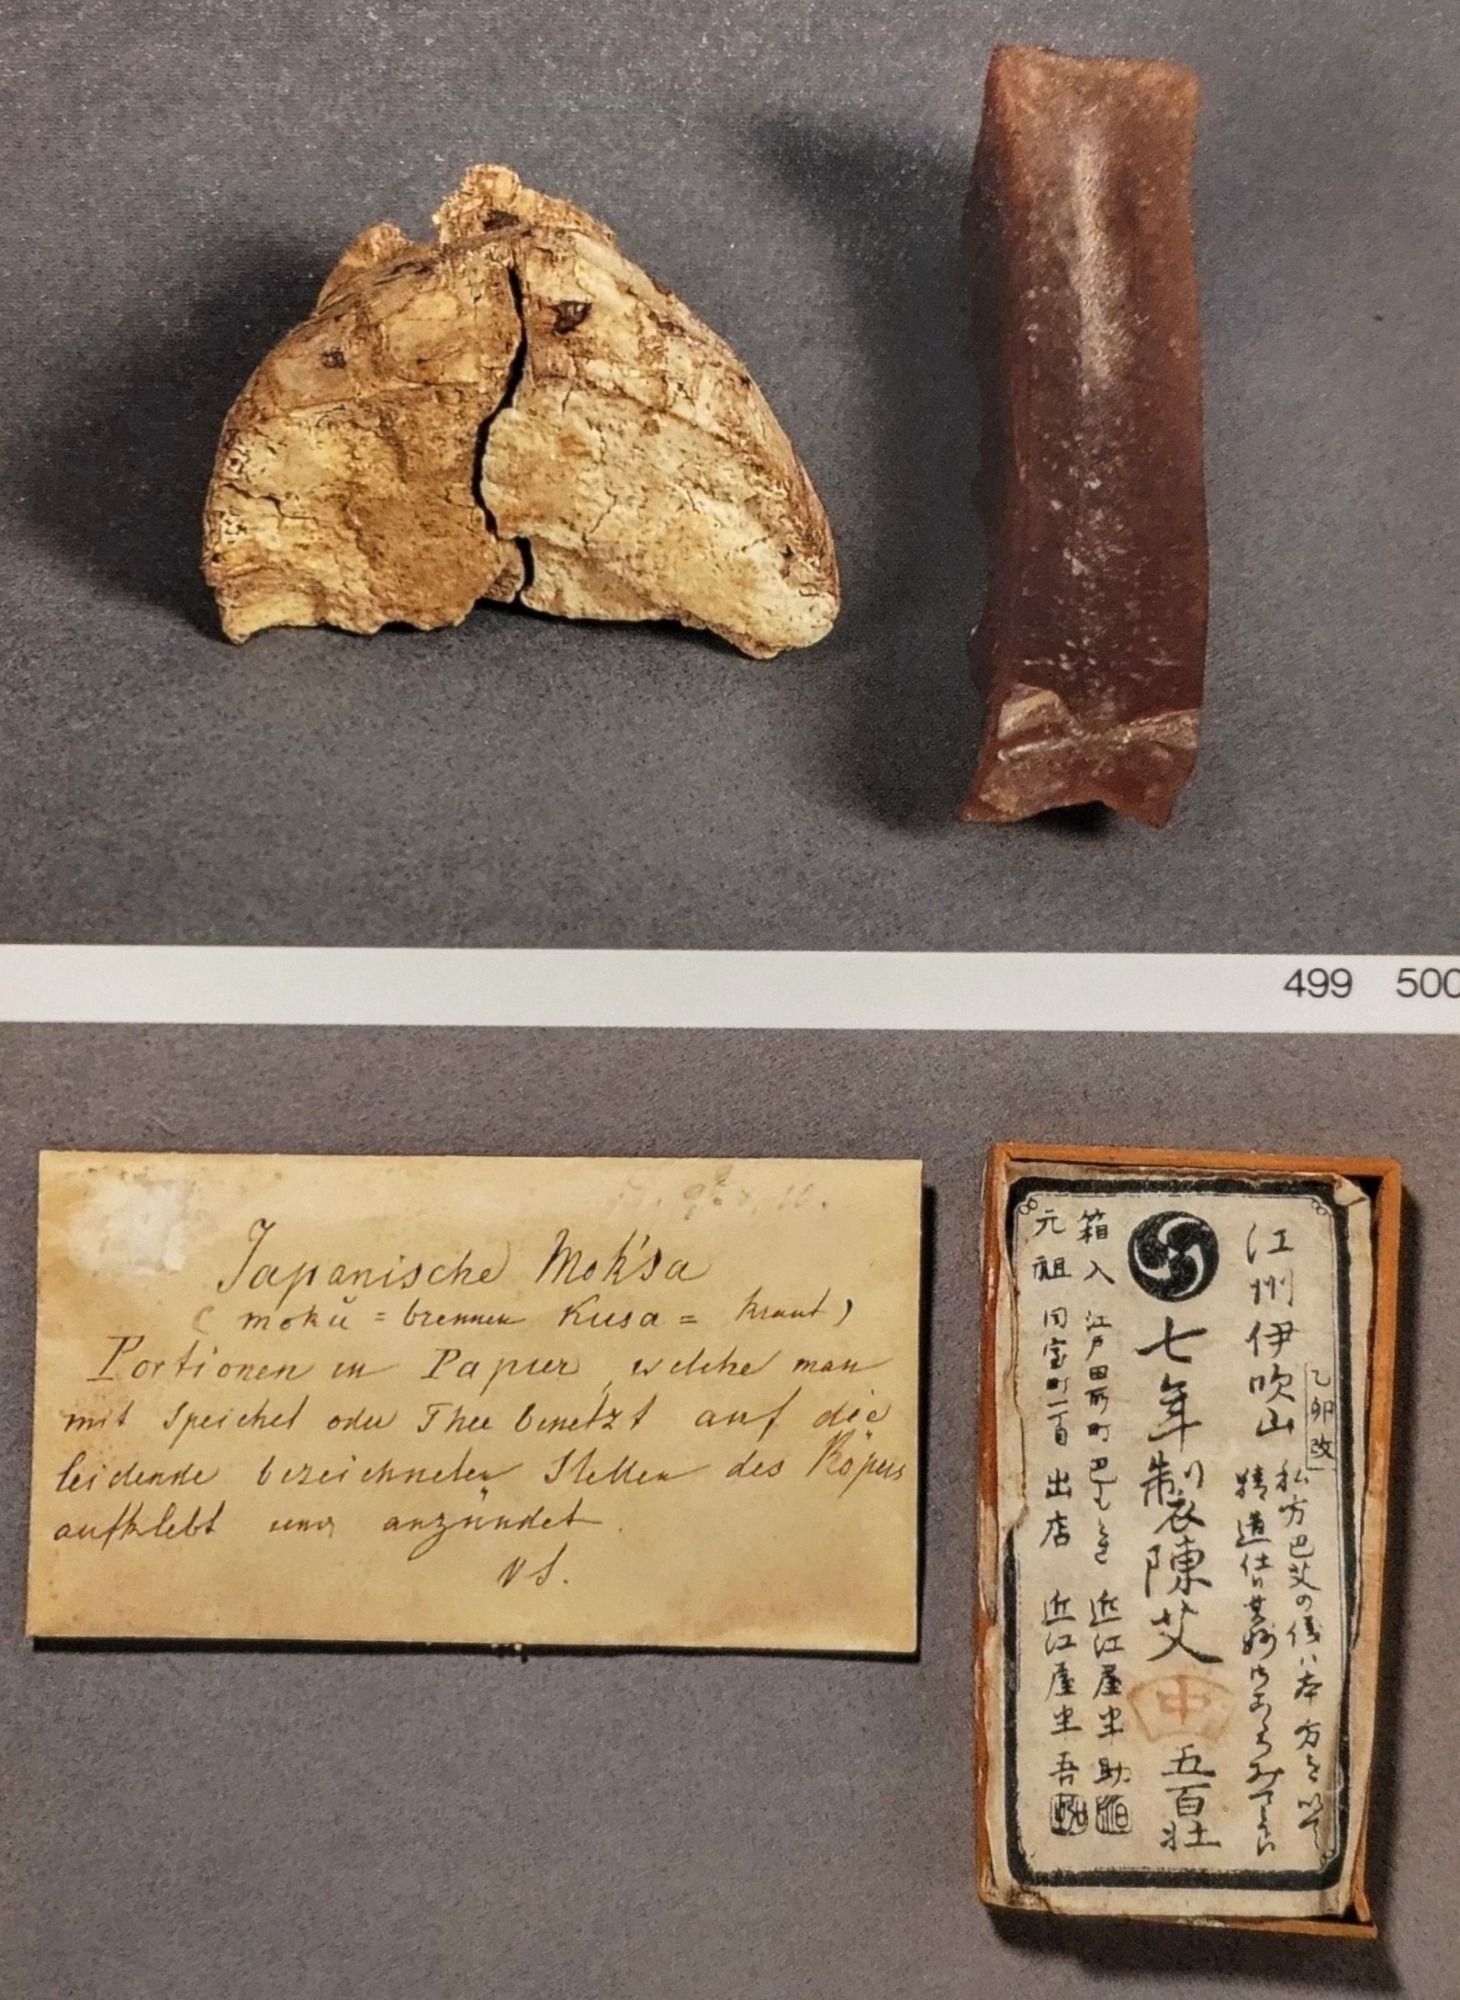 499 500
Japanische Mok'sa
( mokŭ = brennen Kusa = Kraut )
Portionen in Papier, welche man
mit Speichel oder Thee benetzt auf die
leidende bezeichneten Stellen des Köpers
aufklebt und anzündet.
V S.
江州伊吹山
乙卯改
私方巴艾の儀ハ本方を以て
精造仕
七年製陳艾
中
五百壮
箱入 江戸田所町 近江屋半助
元祖 同室町二丁目 出店 近江屋半吾